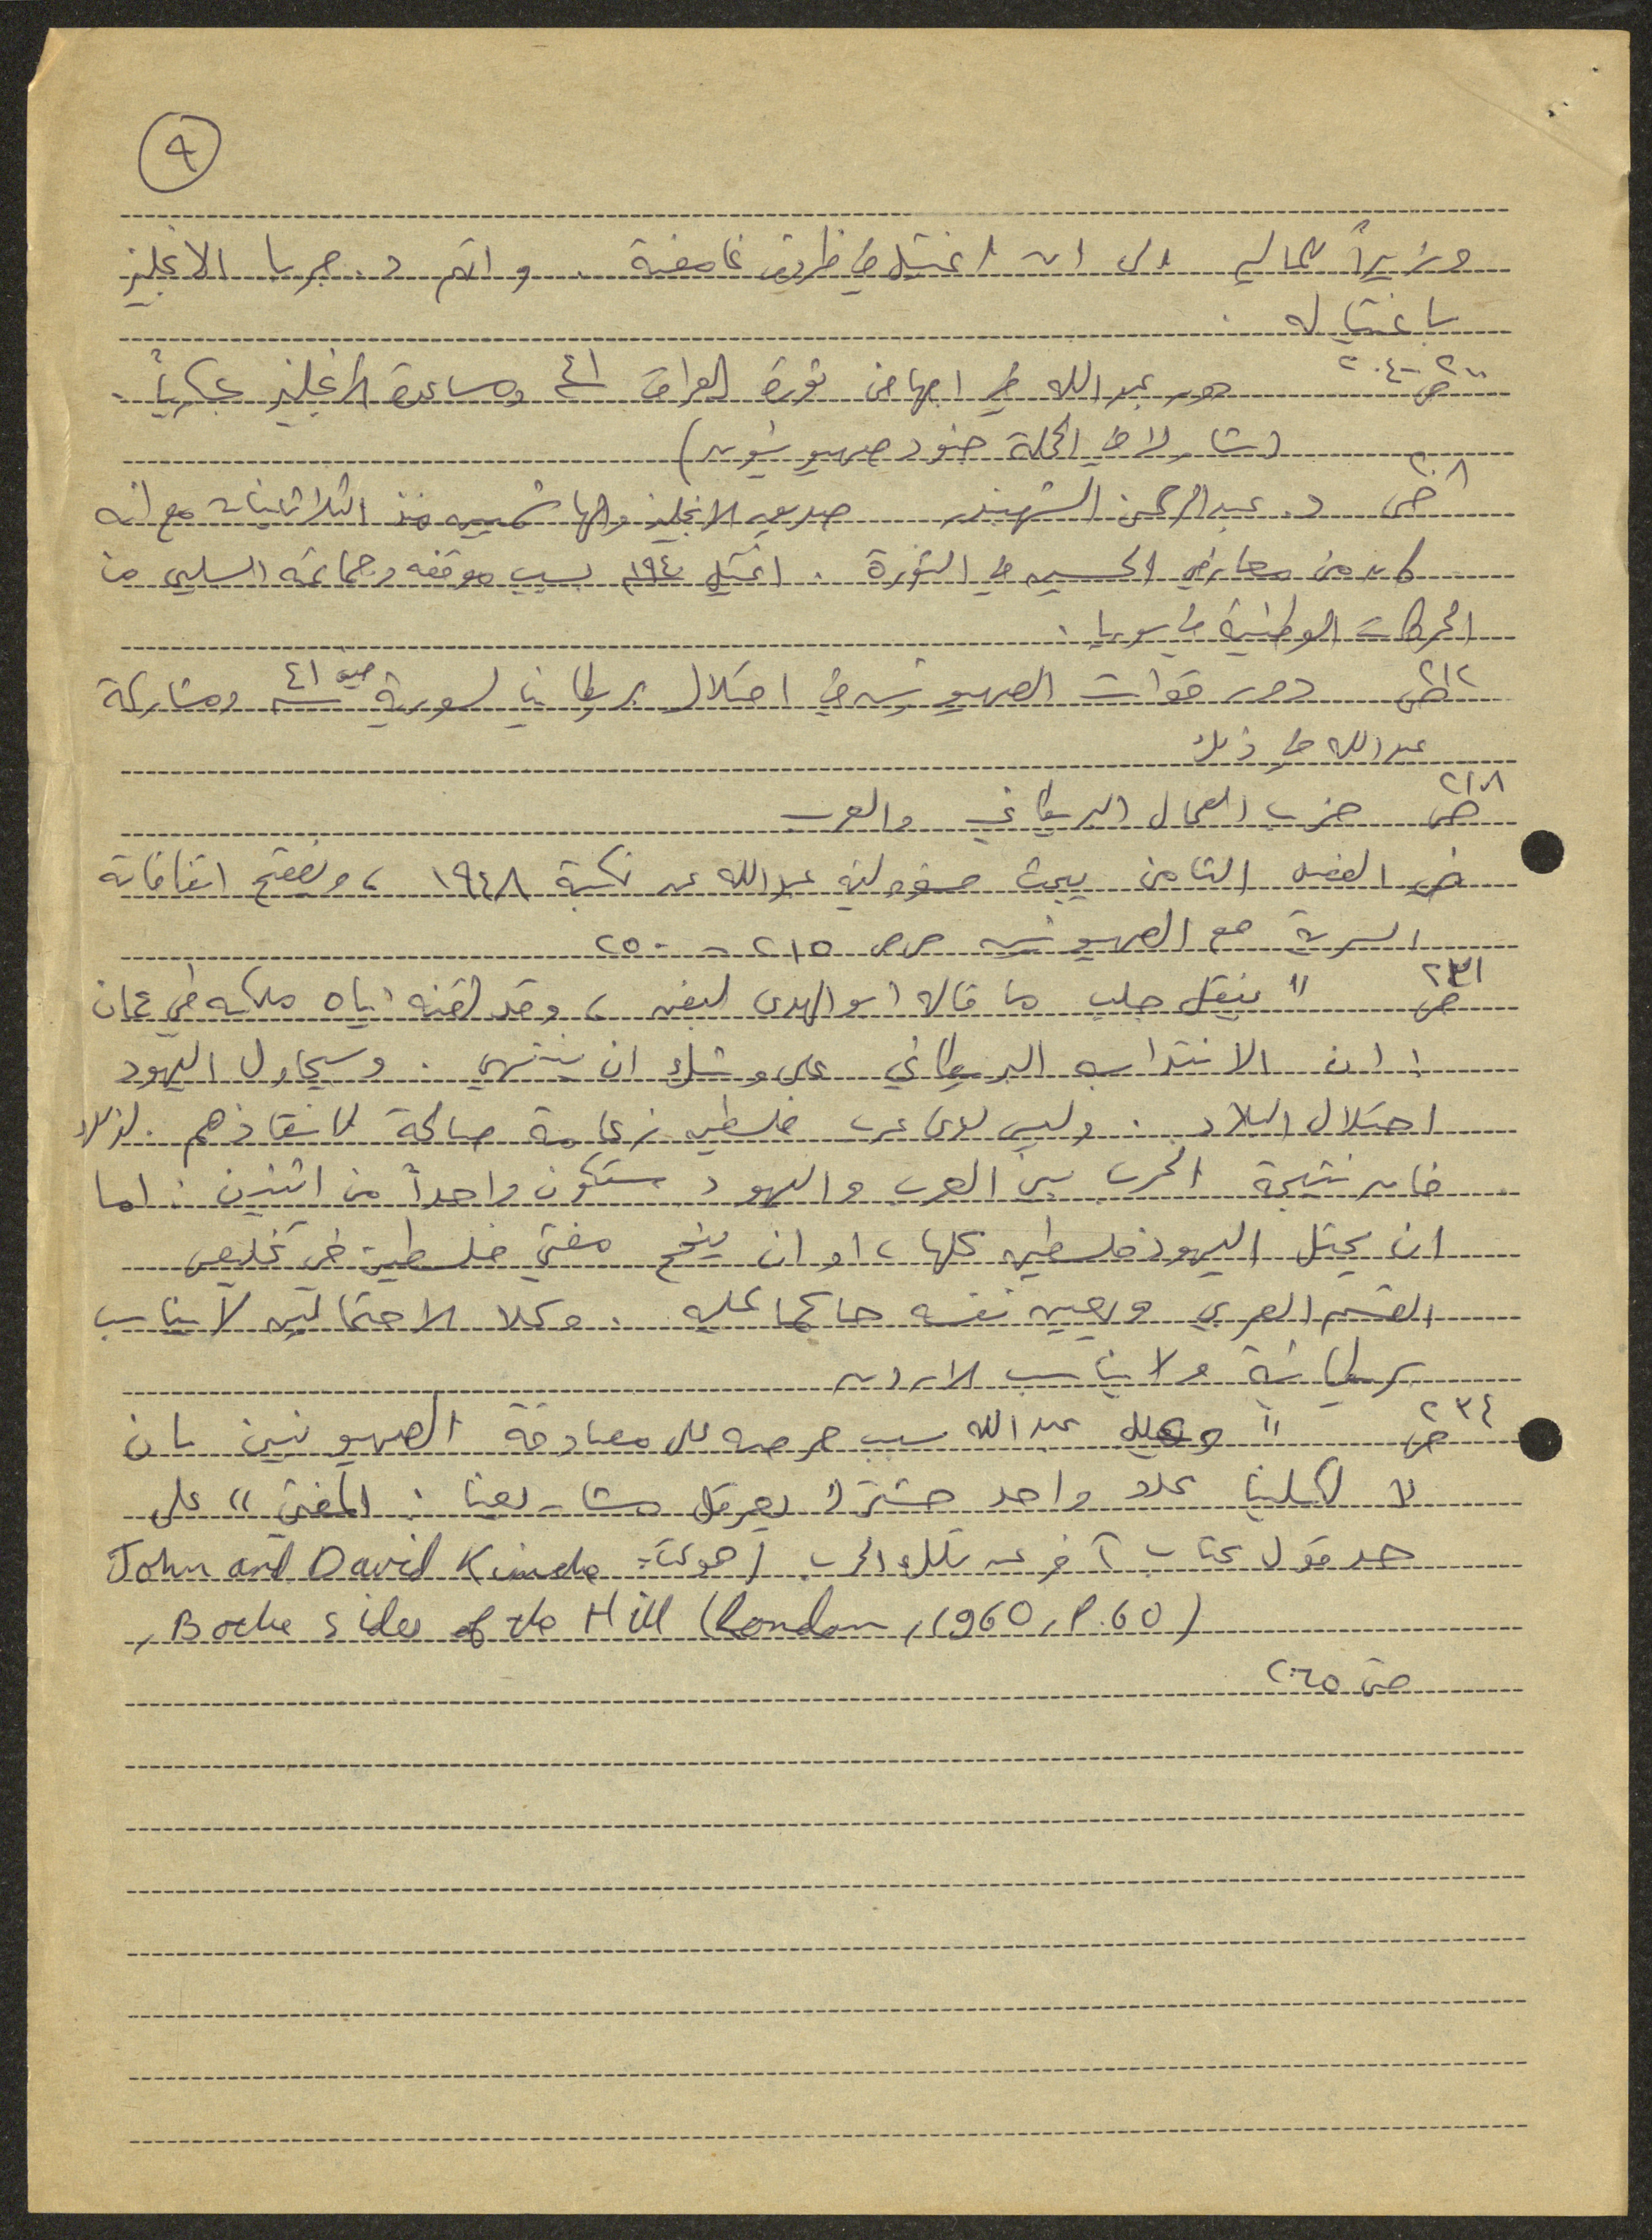 ٩
وزيراً للمالية الى ان اغتيل في ظروف غامضة . واتهم د. جربا الانجليز
باغتياله .
ص ٢٠٠-٢٠٤ دور عبدالله في اجهاض ثورة العراق ٤١ ومساعدة الانجليز عسكرياً .
(شارك في الحملة جنود صهيونيون)
ص ٢٠٨ د. عبدالرحمن الشهبندر صديق الانجليز والهاشميين منذ الثلاثينات مع انه
كان من معارضي الحسين في الثورة . اغتيل ١٩٤٠ بسبب موقفه وجماعته السلبي من
الحركات الوطنية في سوريا .
ص ٢١٢ دور قوات الصهيونيين في احتلال بريطانيا لسورية صيف ٤١ ومشاركة
عبدالله في ذلك
ص ٢١٨ حزب العمال البريطاني والعرب
في الفصل الثامن يبحث مسؤولية عبدالله عن نكبة ١٩٤٨ ، ويفضح اتفاقاته
السرية مع الصهيونيين ص ص ٢١٥ - ٢٥٠
ص ٢٣١ " ينقل جلب ما قاله ابو الهدى لبيفن ، وقد لقنه اياه ملكه في عمان
: ان الانتداب البريطاني على وشك ان ينتهي . وسيحاول اليهود
احتلال البلاد . وليس لدى عرب فلسطين زعامة صالحة لانقاذهم . لذلك
فان نتيجة الحرب بين العرب واليهود ستكون واحداً من اثنين : اما
ان يحتل اليهود فلسطين كلها ، او ان ينجح مفتي فلسطين في تخليص
القسم العربي ويعين نفسه حاكما عليه . وكلا الاحتمالين لا يناسب
بريطانية ولا يناسب الاردن
ص ٢٣٤ " عبدالله سبب حرصه على مصادقة الصهيونيين بان
لا لكلينا عدو واحد مشترك يعرقل مشاريعنا : المفتي " على
حد قول كتاب آخر عن تلك الحرب (هو كتاب John and David Kimche
, Bothe sides of the Hill (London, 1960, P. 60)
ص ٢٦٥